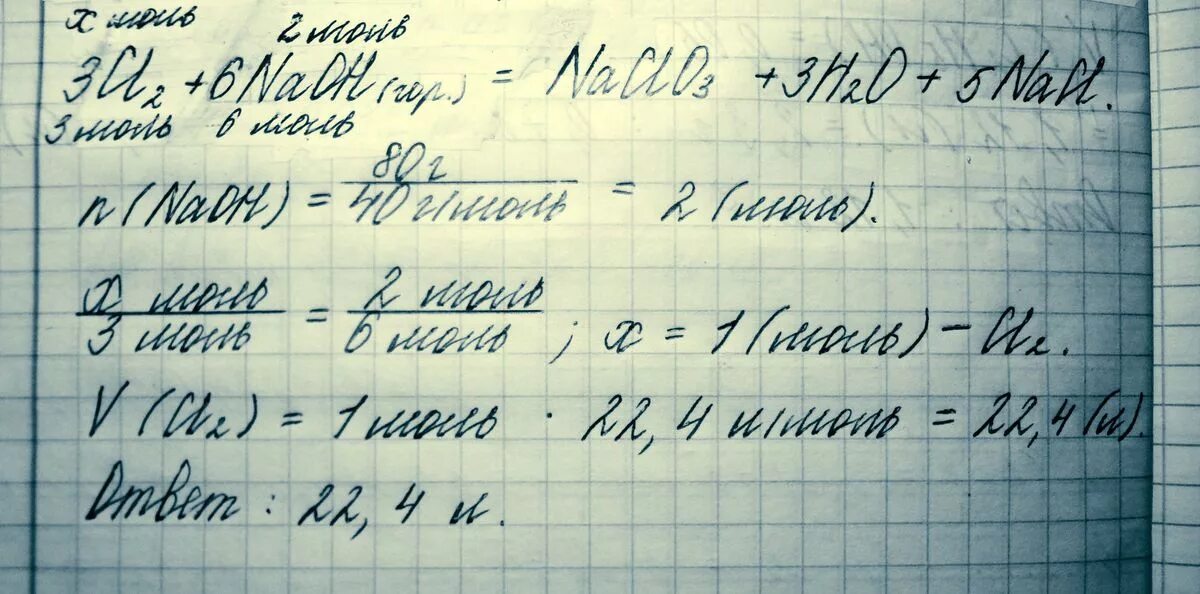 x моль 2 моль
3Cl₂ + 6NaOH (гор.) = NaClO₃ + 3H₂O + 5NaCl.
3 моль 6 моль
n (NaOH) = 80 г / 40 г/моль = 2 (моль).
x моль / 3 моль = 2 моль / 6 моль ; x = 1 (моль) – Cl₂.
V (Cl₂) = 1 моль · 22,4 л/моль = 22,4 (л).
Ответ : 22,4 л.